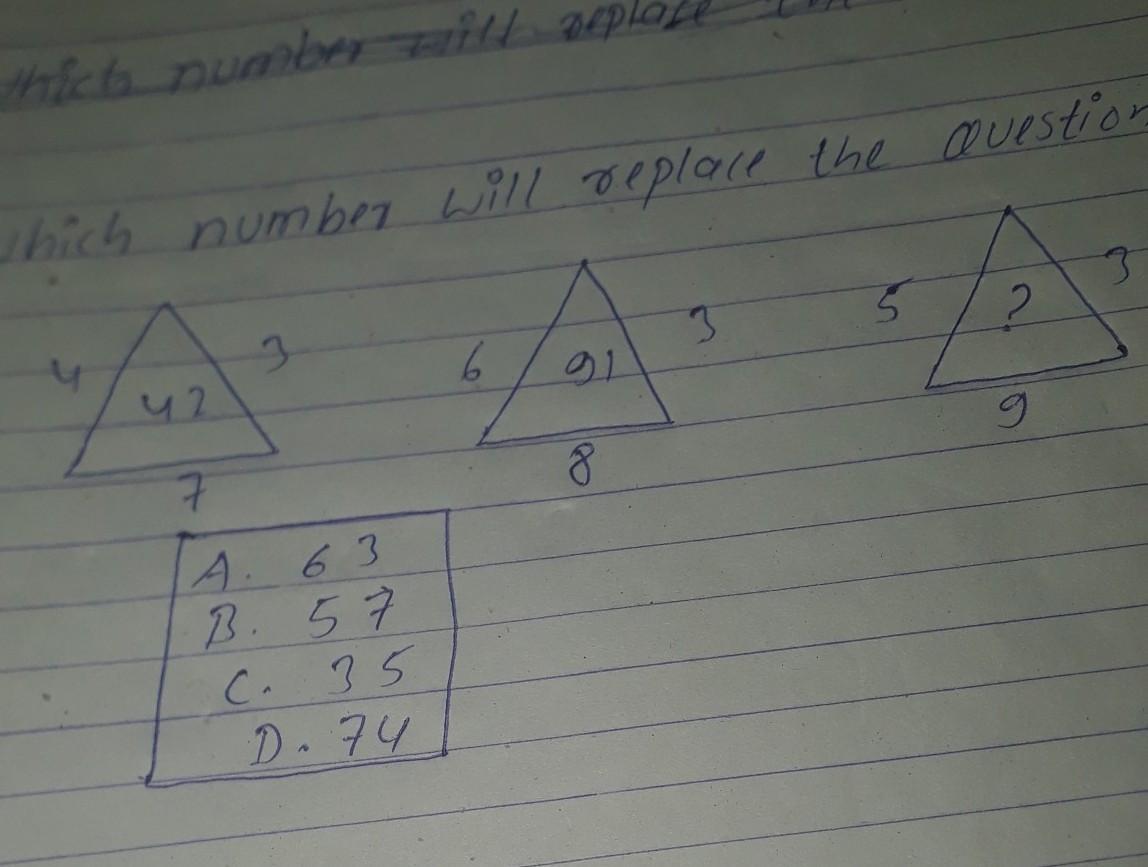 number will replace
which number will replace the Question
4 42 3 7
6 91 3 8
5 ? 3 9
A. 63
B. 57
C. 35
D. 74